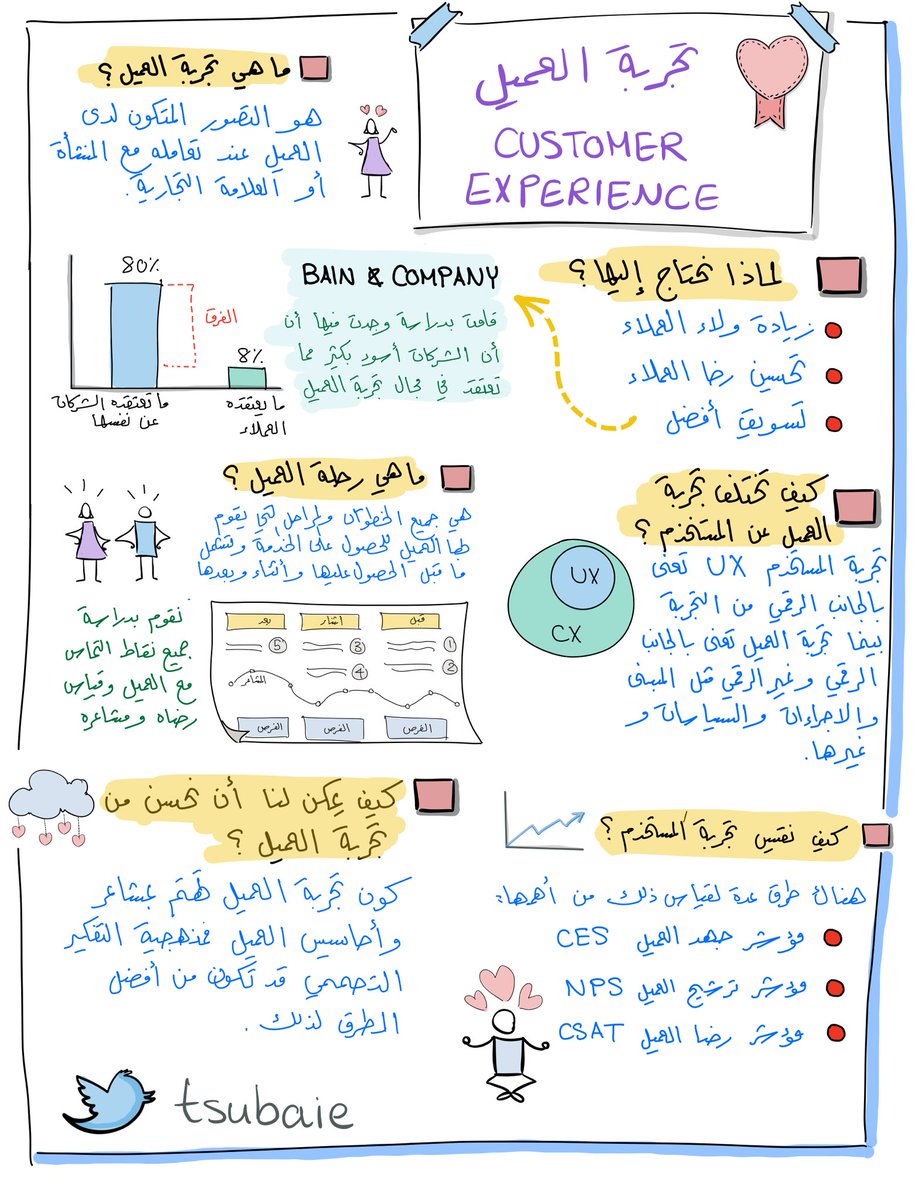 تجربة العميل
CUSTOMER
EXPERIENCE
ما هي تجربة العميل؟
هو التصور المتكون لدى
العميل عند تعامله مع المنشأة
أو العلامة التجارية.
لماذا نحتاج إليها؟
زيادة ولاء العملاء
تحسين رضا العملاء
تسويق أفضل
BAIN & COMPANY
قامت بدراسة وجدت فيها أن
أن الشركات أسوء بكثير مما
تعتقد في مجال تجربة العميل
80%
الفرق
8%
ما تعتقده الشركات
عن نفسها
ما يعتقده
العملاء
كيف تختلف تجربة
العميل عن المستخدم؟
تجربة المستخدم UX تعنى
بالجانب الرقمي من التجربة
بينما تجربة العميل تعنى بالجانب
الرقمي وغير الرقمي مثل المبنى
والاجراءات والسياسات و
غيرها.
UX
CX
ما هي رحلة العميل؟
هي جميع الخطوات والمراحل التي يقوم
بها العميل للحصول على الخدمة وتشمل
ما قبل الحصول عليها وأثناء وبعدها
نقوم بدراسة
جميع نقاط التماس
مع العميل وقياس
رضاه ومشاعره
قبل
أثناء
بعد
1
2
3
4
5
المشاعر
الفرص
الفرص
الفرص
كيف نقيس تجربة المستخدم؟
هناك طرق عدة لقياس ذلك من أهمها:
مؤشر جهد العميل CES
مؤشر ترشيح العميل NPS
مؤشر رضا العميل CSAT
كيف يمكن لنا أن نحسن من
تجربة العميل؟
كون تجربة العميل تهتم بمشاعر
وأحاسيس العميل فمنهجية التفكير
التصميمي قد تكون من أفضل
الطرق لذلك.
tsubaie